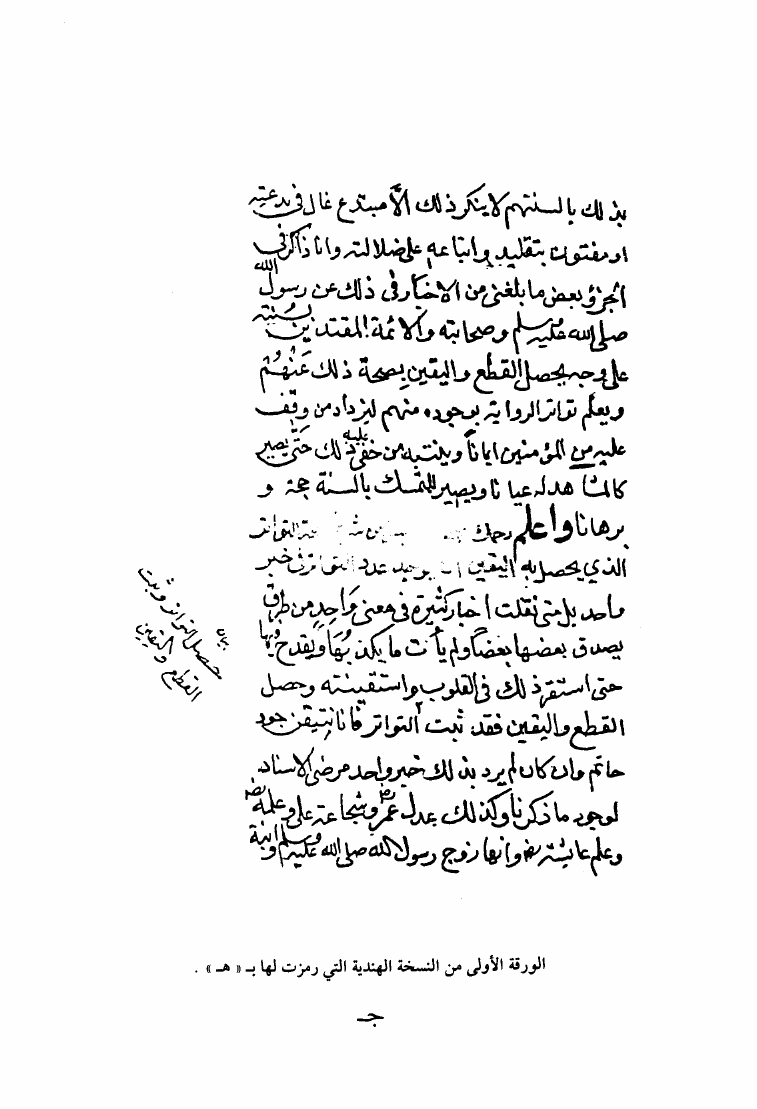 بذلك بالسنتهم لا ينكر ذلك الا مبتدع غال في بدعته
او مفتون بتقليد واتباعه على ضلالته وانا ذاكر في
الجزؤ بعض ما بلغني من الاخبار في ذلك عن رسول الله
صلى الله عليه وسلم وصحابته والائمة المقتدين بسنته
على وجه يحصل القطع واليقين بصحة ذلك عنهم
ويعلم تواتر الرواية بوجوده منهم ليزداد من وقف
عليه من المؤمنين ايمانا وينتبه من خفي عليه ذلك حتى يصير
كالمشاهد له عيانا ويصير للتمسك بالسنة حجة و
برهانا واعلم رحمك من شرط التواتر
الذي يحصل به اليقين يوجد عدد التواتر في خبر
واحد بل متى نقلت اخبار كثيرة في معنى واحد من طرق
يصدق بعضها بعضا ولم يأت ما يكذبها ويقدح فيها
حتى استقر ذلك في القلوب واستقينته وحصل
القطع واليقين فقد ثبت التواتر فانا نتيقن جود
حاتم وان كان لم يرد بذلك خبر واحد مرضي الاسناد
لوجود ما ذكرنا وكذلك عدل عمر رض وشجاعة علي وعلمه رض
وعلم عائشة رض وانها زوج رسول الله صلى الله عليه وسلم وابنة
بيان
حصل التواتر وثبت
القطع واليقين
الورقة الأولى من النسخة الهندية التي رمزت لها بـ « هـ » .
جـ